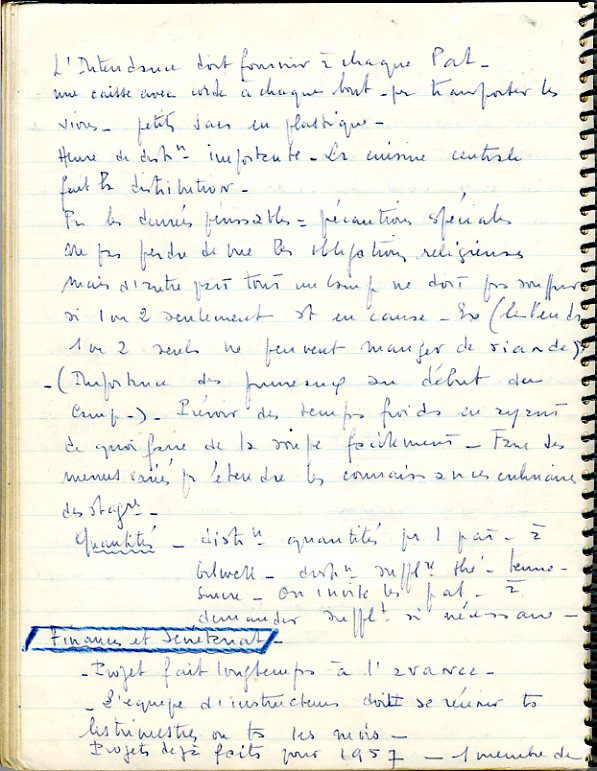 L'Intendance doit fournir à chaque Pat -
une caisse avec corde à chaque bout - pr transporter les
vivres - petits sacs en plastique -
Heure de distron importante - La cuisine centrale
fait la distribution -
Pr les denrées périssables = précautions spéciales
ne pas perdre de vue les obligations religieuses
mais d'autre part tout un camp ne doit pas souffrir
si 1 ou 2 seulement st en cause - Ex (les Vends
1 ou 2 seuls ne peuvent manger de viande)
- (Importance des pruneaux au début du
camp -) - Prévoir des temps froids en ayant
de quoi faire de la soupe facilement - Faire des
menus variés pr étendre les connaissances culinaires
des stagres -
Quantités - distron quantités pr 1 pat - à
Gilwell - distron supplre thé - beurre -
sucre - On invite les pat - à
demander supplt si nécessaire -
Finances et Secrétariat -
- Projet fait longtemps à l'avance -
- L'équipe d'instructeurs doit se réunir ts
les trimestres ou ts les mois -
Projets déjà faits pour 1957 - 1 membre de